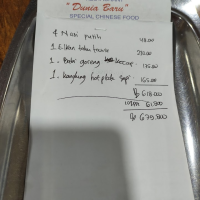 "Dunia Baru"
SPECIAL CHINESE FOOD
4 Nasi putih 48.000
1. E.Ikan tahu 230.000
1. Babi goreng kecap 175.000
1. kangkung hot plate sapi 165.000
Rp 618.000
10% 61.800
Rp 679.800